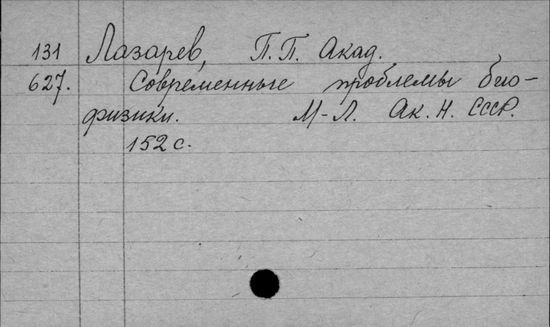 131 Лазарев, П.П. Акад.
627. Современные проблемы био-
физики. М-Л. Ак. Н. СССР.
152 с.